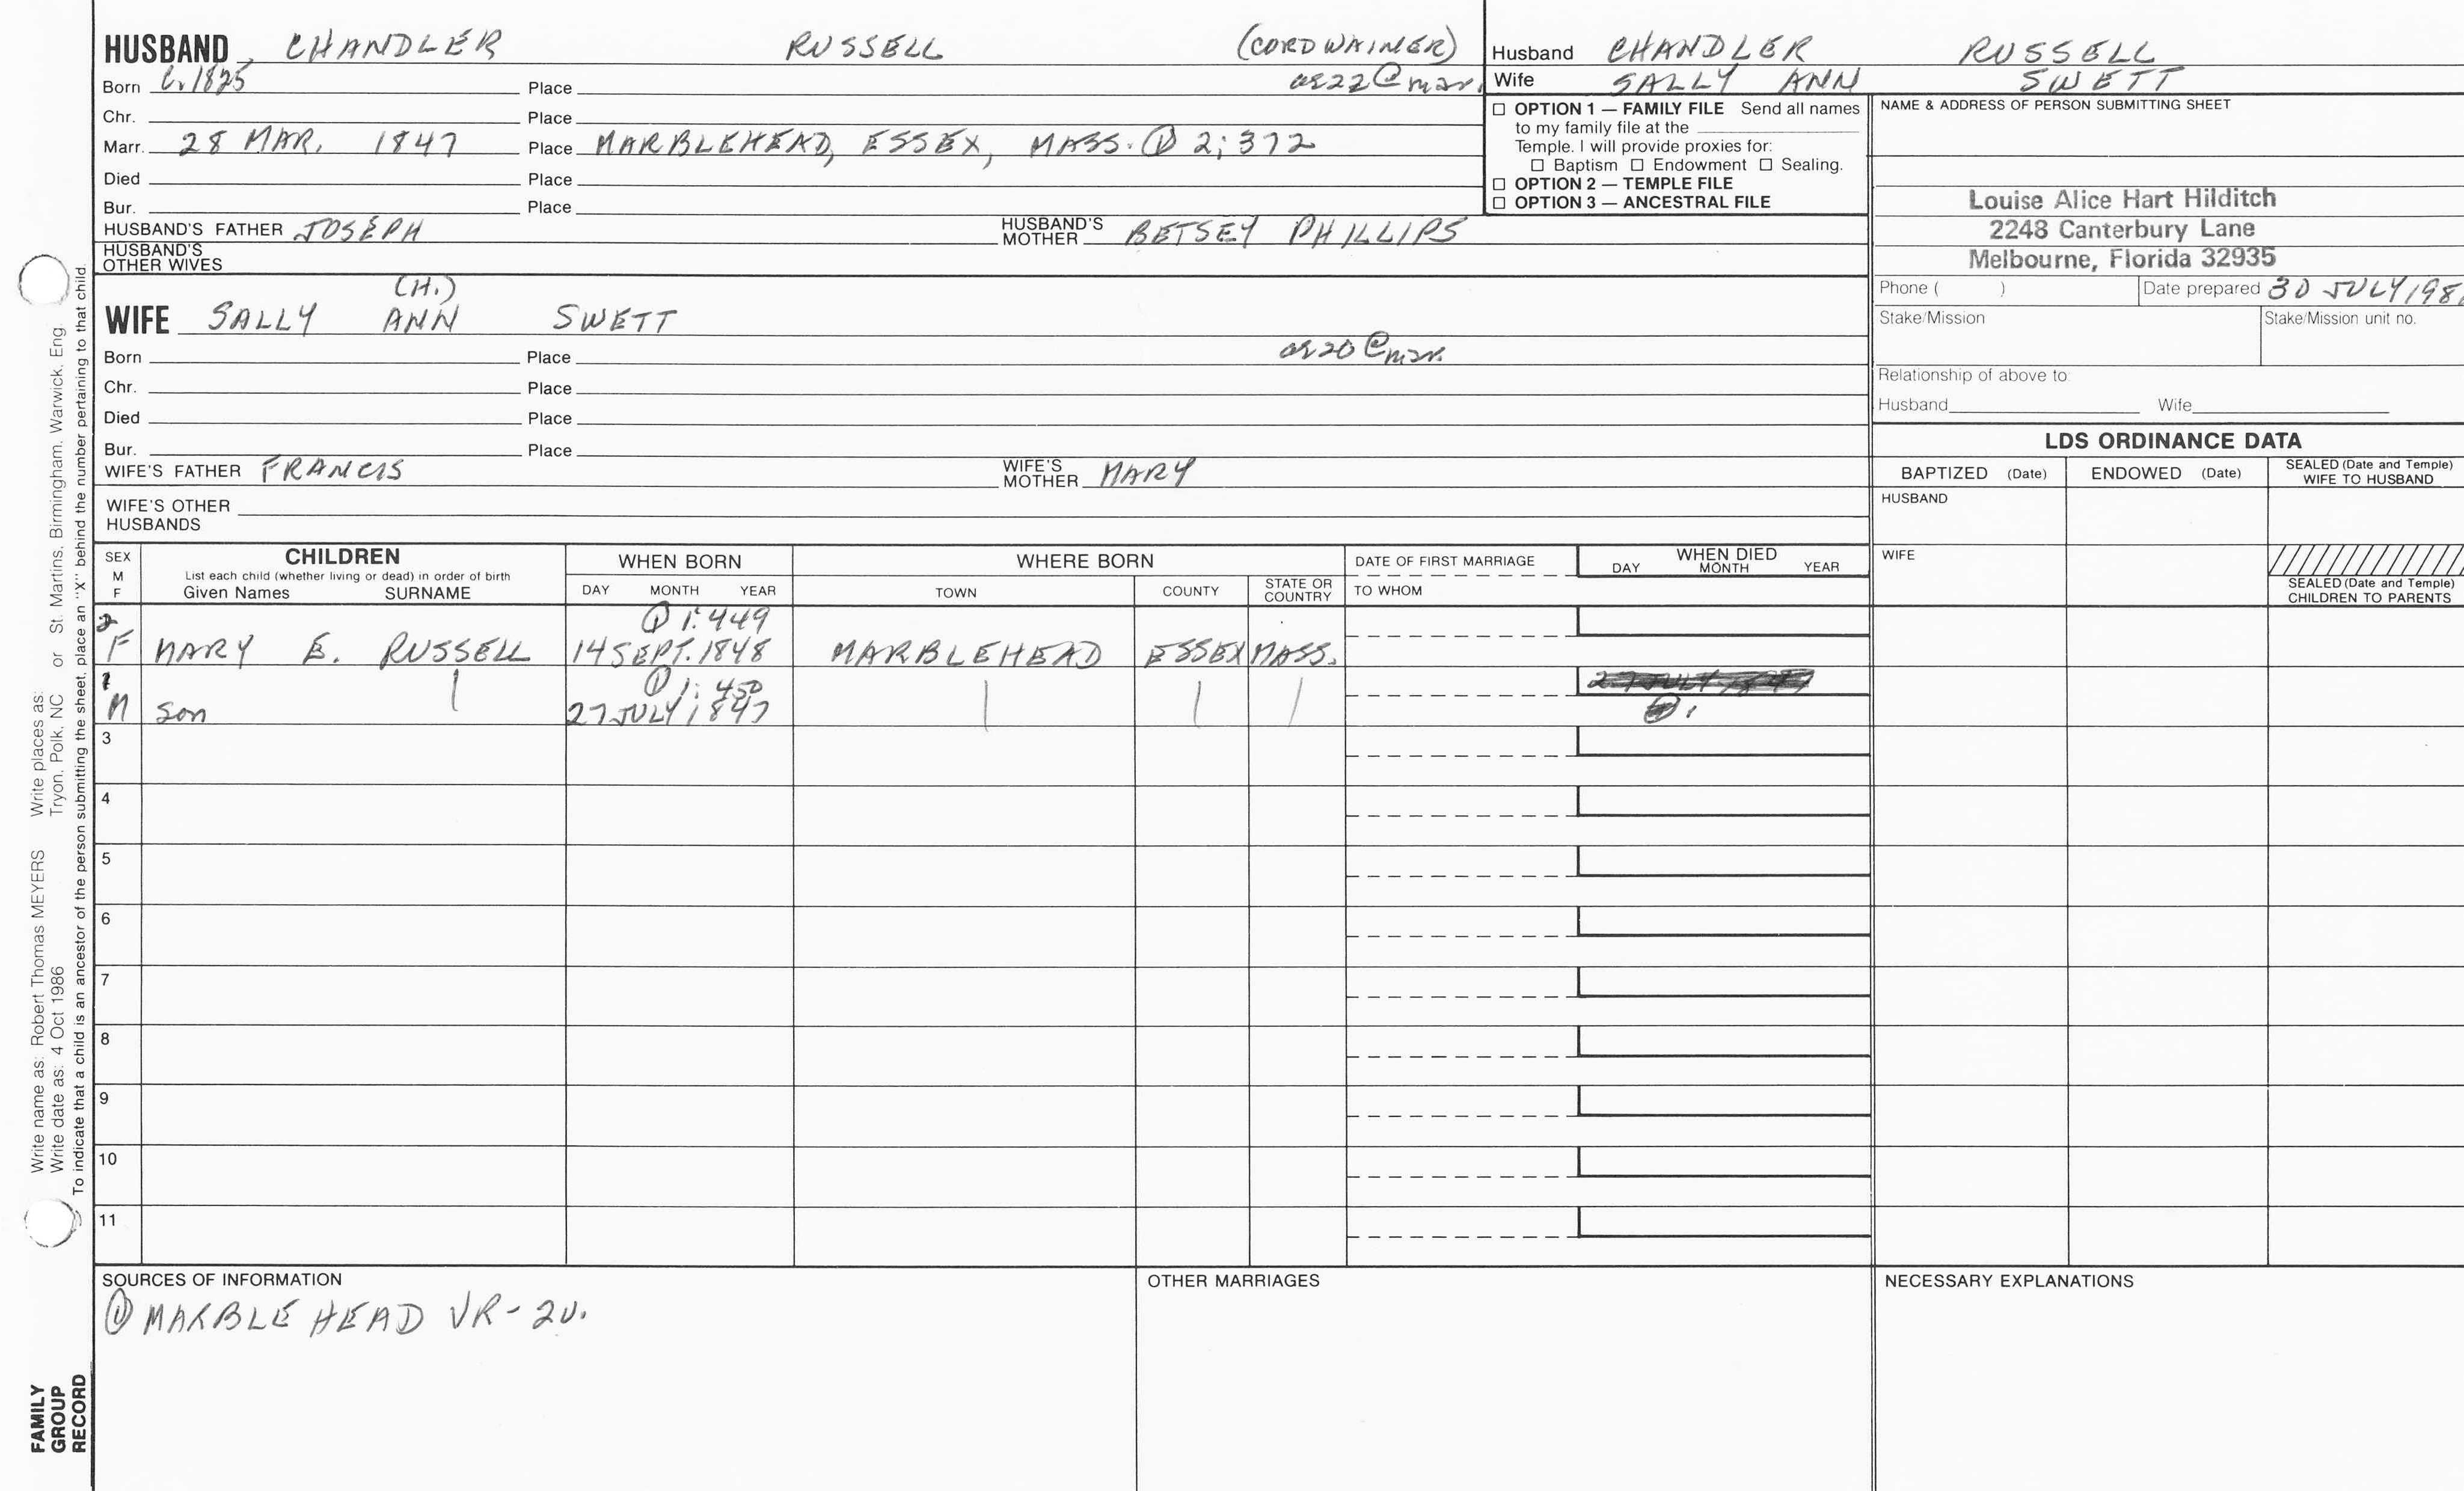 HUSBAND CHANDLER RUSSELL (CORDWAINER)
Born C. 1825 Place ag 22 @ mar.
Chr. Place
Marr. 28 MAR. 1847 Place MARBLEHEAD, ESSEX, MASS. ① 2:372
Died Place
Bur. Place
HUSBAND'S FATHER JOSEPH HUSBAND'S MOTHER BETSEY PHILLIPS
HUSBAND'S OTHER WIVES
(H.)
WIFE SALLY ANN SWETT
Born Place ag 20 @ mar.
Chr. Place
Died Place
Bur. Place
WIFE'S FATHER FRANCIS WIFE'S MOTHER MARY
WIFE'S OTHER HUSBANDS
Husband CHANDLER RUSSELL
Wife SALLY ANN SWETT
☐ OPTION 1 — FAMILY FILE Send all names
to my family file at the
Temple. I will provide proxies for:
☐ Baptism ☐ Endowment ☐ Sealing.
☐ OPTION 2 — TEMPLE FILE
☐ OPTION 3 — ANCESTRAL FILE
NAME & ADDRESS OF PERSON SUBMITTING SHEET
Louise Alice Hart Hilditch
2248 Canterbury Lane
Melbourne, Florida 32935
Phone ( ) Date prepared 30 JULY 198
Stake/Mission Stake/Mission unit no.
Relationship of above to
Husband Wife
LDS ORDINANCE DATA
BAPTIZED (Date) ENDOWED (Date) SEALED (Date and Temple) WIFE TO HUSBAND
HUSBAND
WIFE
SEALED (Date and Temple) CHILDREN TO PARENTS
SEX M F
CHILDREN
List each child (whether living or dead) in order of birth
Given Names SURNAME
WHEN BORN
DAY MONTH YEAR
WHERE BORN
TOWN COUNTY STATE OR COUNTRY
DATE OF FIRST MARRIAGE
TO WHOM
WHEN DIED
DAY MONTH YEAR
2 ① 1:449
F MARY E. RUSSELL 14 SEPT. 1848 MARBLEHEAD ESSEX MASS.
1 ① 1:450 27 JULY 1847
M Son 27 JULY 1847
3
4
5
6
7
8
9
10
11
SOURCES OF INFORMATION
① MARBLEHEAD VR-2V.
OTHER MARRIAGES
NECESSARY EXPLANATIONS
Write name as: Robert Thomas MEYERS Write places as:
Write date as: 4 Oct 1986 Tryon, Polk, NC or St. Martins, Birmingham, Warwick, Eng.
To indicate that a child is an ancestor of the person submitting the sheet, place an "X" behind the number pertaining to that child.
FAMILY
GROUP
RECORD